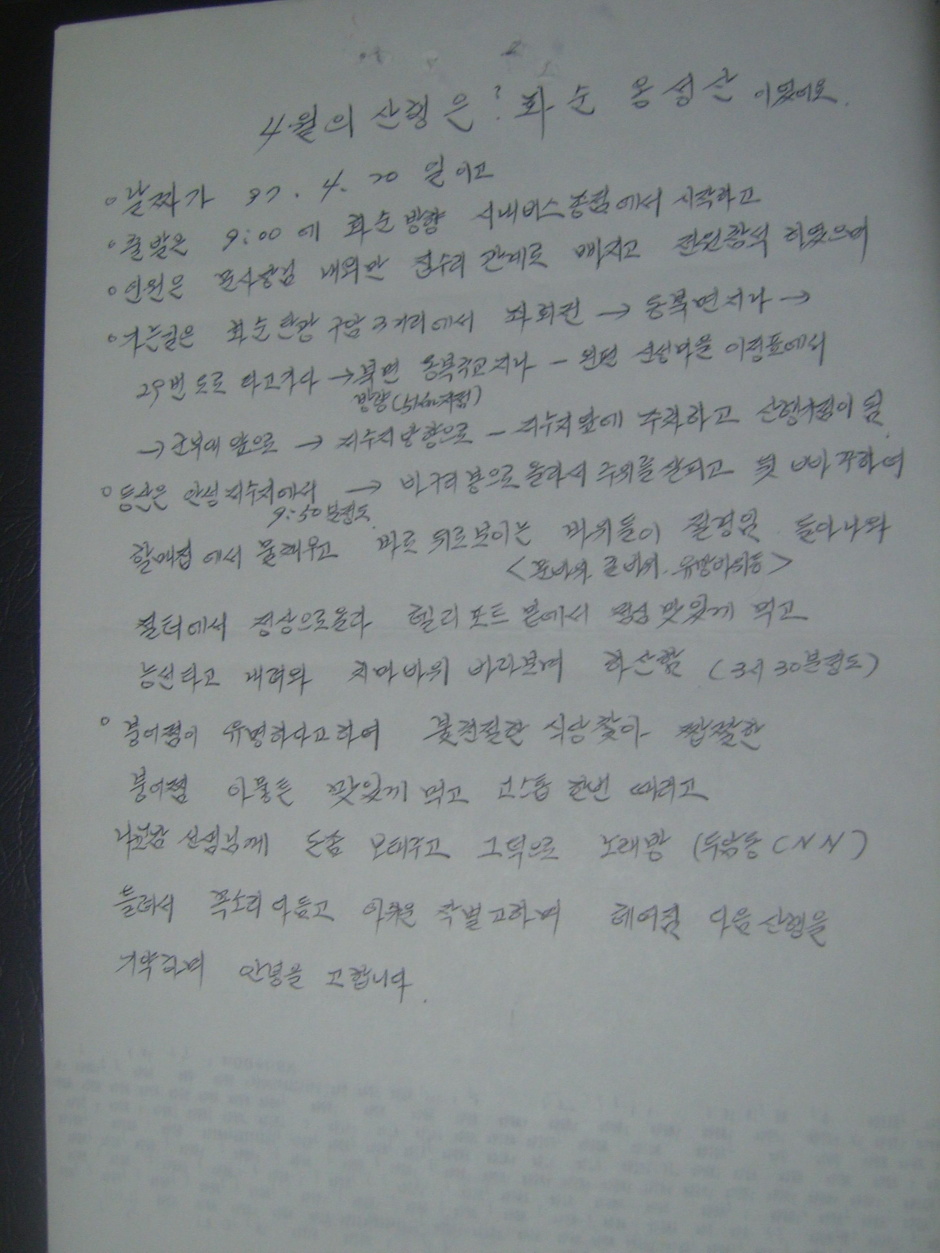 4월의 산행은? 화순 옹성산 이었어요.
○ 날짜가 97. 4. 20 일이고
○ 출발은 9:00 에 화순방향 시내버스종점에서 시작하고
○ 인원은 문사장님 내외만 집수리 관계로 빠지고 전원참석 하였으며
○ 가는길은 화순탄광 구암3거리에서 좌회전 → 동복면지나 →
29번 도로 타고가다 → 북면 동북국교지나 - 왼편 신성마을 이정표에서
방향(51km지점)
→ 군부대 앞으로 → 저수지방향으로 - 저수지앞에 주차하고 산행시점이 됨
○ 등산은 안성저수지에서 → 바구리봉으로 올라서 주위를 살피고
9:50분정도
할매집에서 물채우고 바로 위로보이는 바위들이 절경임 돌아나와
<문바위 큰바위. 유방바위등>
쉼터에서 정상으로올라 헬리포트 밑에서 점심 맛있게 먹고
능선타고 내려와 치마바위 바라보며 하산함 (3시 30분정도)
○ 붕어찜이 유명하다고하여 불친절한 식당찾아 짭짤한
붕어찜 아물튼 맛있게 먹고 고스톱 한번 때리고
선생님께 돈좀 보태주고 그덕으로 노래방 (두암동 CNN)
들려서 목소리 다듬고 아쉬운 작별고하며 헤어짐 다음 산행을
기약하며 안녕을 고합니다.